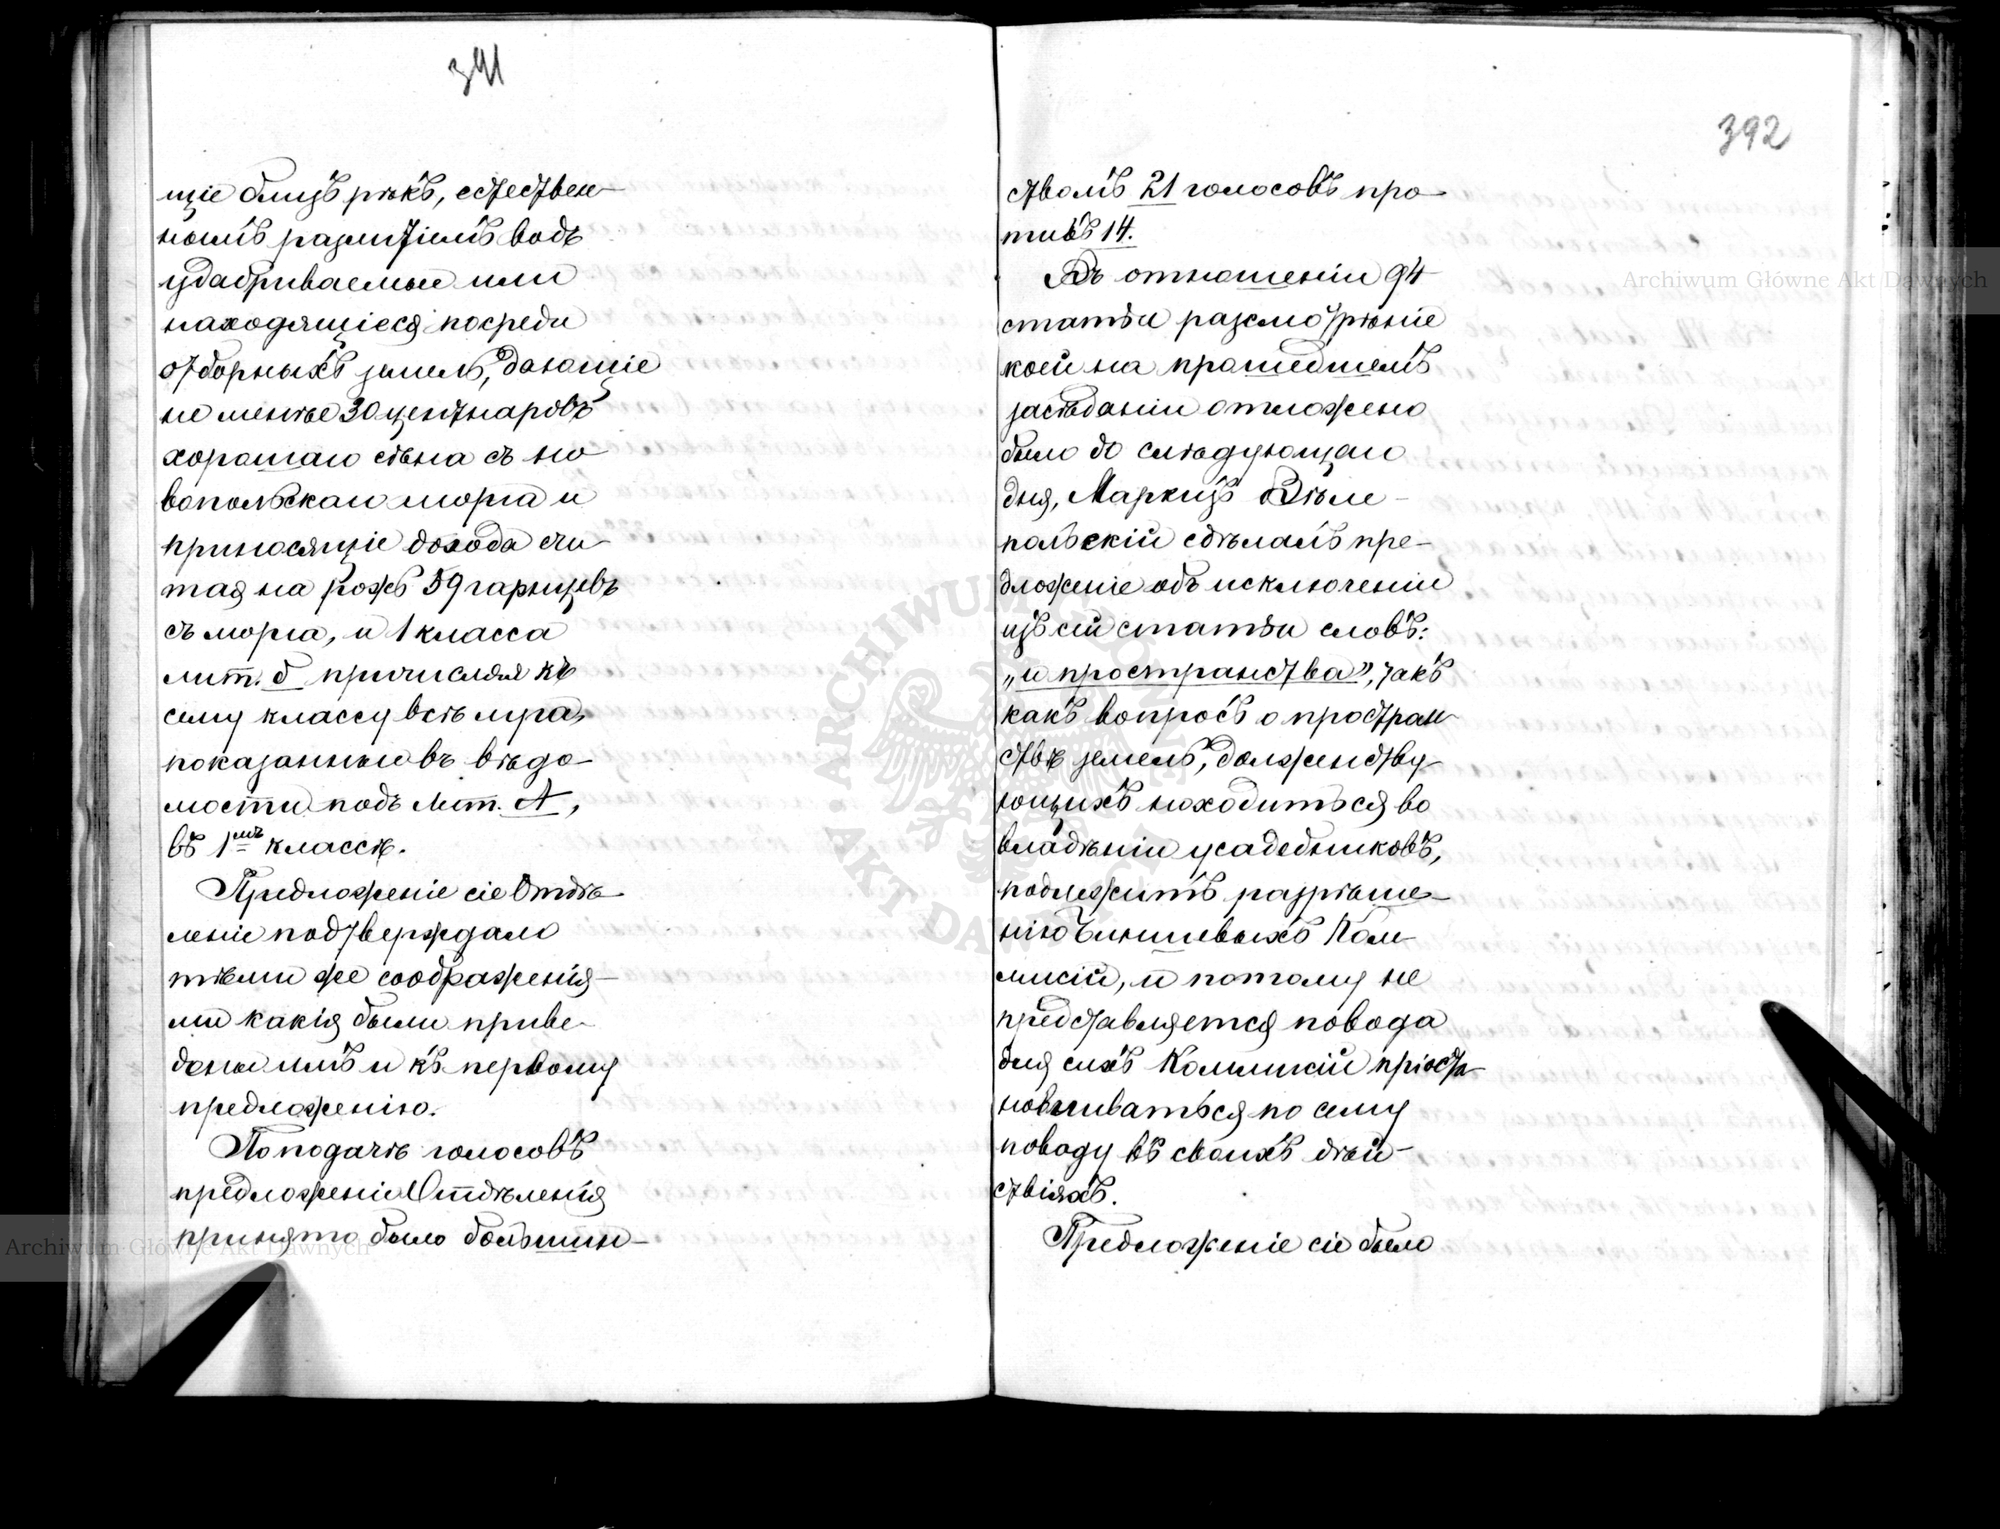 391
щіе близъ рѣкъ, естествен-
нымъ разлитіемъ водъ
удабриваемыи или
находящіеся посреди
отборныхъ земель, дающіе
не менѣе 30 центнаровъ
хорошаго сѣна съ но
вопольскаго морга и
приносящіе дохода счи-
тая на рожь 59 гарнцевъ
съ морга, и 1 класса
лит. б причисляя къ
сему классу всѣ луга,
показанныи въ вѣдо-
мости подъ Лит. А,
въ 1мъ классѣ.
Предложеніе сіе Отдѣ-
леніе подтверждало
тѣми же соображенія-
ми какія были приве-
дены имъ и къ первому
предложенію.
По подачѣ голосовъ
предложеніе Отдѣленія
принято было большин-
392
ствомъ 21 голосовъ про-
тивъ 14.
Въ отношеніи 94
статьи разсмотрѣніе
коей на прошедшемъ
засѣданіи отложено
было до слѣдующаго
дня, Маркизъ Вѣле-
польскій сдѣлалъ пре-
дложеніе объ исключеніи
изъ сей статьи словъ:
„и пространства”, такъ
какъ вопросъ о простран-
ствѣ земель, долженству-
ющихъ находиться во
владѣніи усадебниковъ,
подлежитъ разрѣше-
нію Чиншевыхъ Ком-
мисій, и потому не
представляется повода
для сихъ Коммисій пріоста-
новливаться по сему
поводу въ своихъ дѣй-
ствіяхъ.
Предложеніе сіе было
Archiwum Główne Akt Dawnych
Archiwum Główne Akt Dawnych
ARCHIWUM GŁÓWNE AKT DAWNYCH